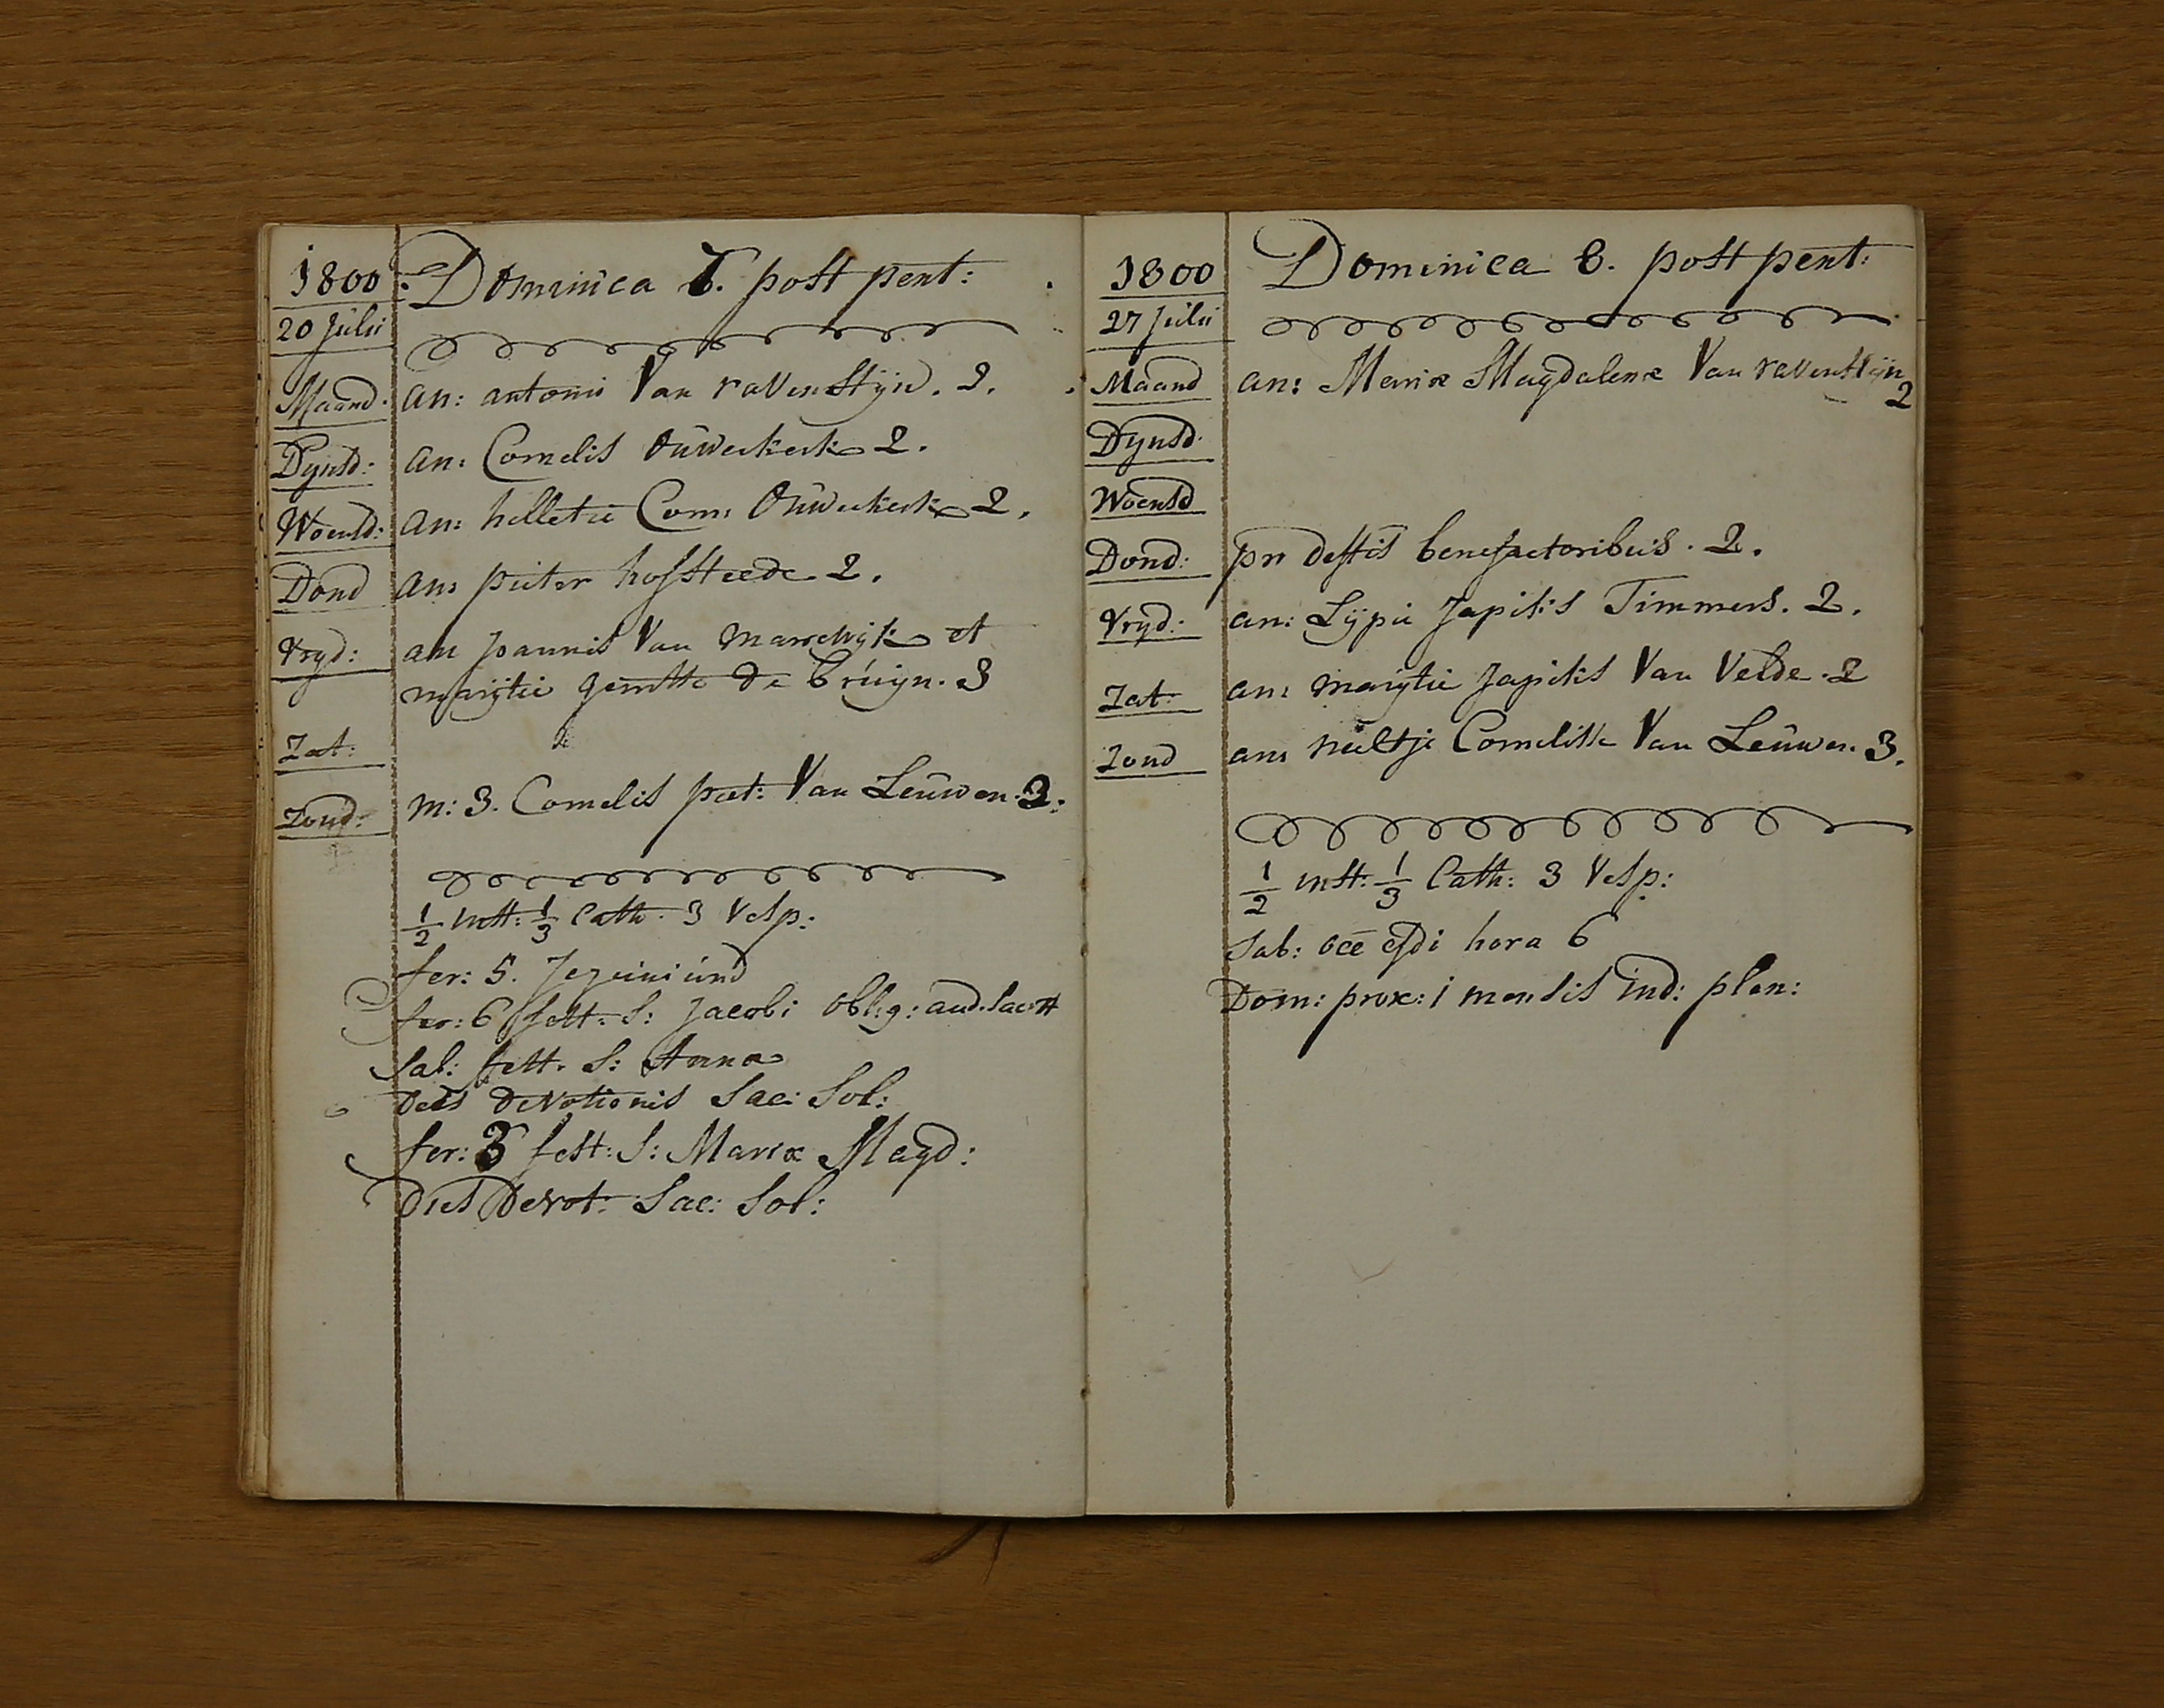 1800. Dominica 7. post pent:
20 Julii
Maand. an: antonii Van ravenstijn. 2.
Dijnsd: an: Cornelis Ouwerkerk 2.
Woensd: an: hilletie Corn: Ouwerkerk 2.
Dond an: pieter hofsteede 2.
Vryd: an: Joannis Van Marrewijk et
marijtie gerritse de Bruijn. 3
Zat:
Zond: m: 3. Cornelis piet: Van Leuwen. 2.
1/2 inst: 1/3 Cath. 3 Vesp:
fer: 5. Jejunium
fer: 6 fest: S: Jacobi oblig: aud. sacr
Sab: fest. S: Anna
dies devotionis Sac: Sol:
fer: 3 fest: S: Mariæ Magd:
Dies Devot: Sac: Sol:
1800 Dominica 8. post pent:
27 Julii
Maand an: Mariæ Magdalenæ Van ravenstijn
2
Dijnsd.
Woensd
Dond: pro deftis benefactoribus. 2.
Vryd: an: Lijpie Japiks Timmers. 2.
Zat. an: marijtie Japiks Van Velde. 2
Zond an: neeltje Cornelisse Van Leuwen. 3.
1/2 inst: 1/3 Cath: 3 Vesp:
Sab: occ hora 6
Dom: prox: 1 mensis ind: plen: